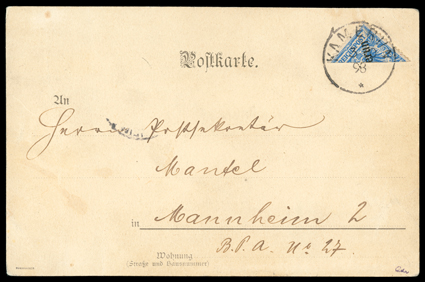 KAMERUN
98
Postkarte.
An
Herrn Postsekretär
Mantel
in Mannheim 2
Wohnung
B.P.A. No 27.
(Straße und Hausnummer)